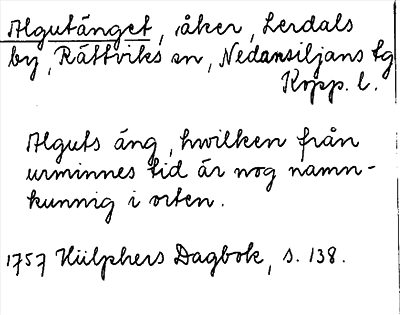 Algutänget, åker, Lerdals
by, Rättviks sn, Nedansiljans tg
Kopp. l.
Alguts äng, hwilken från
urminnes tid är nog namn-
kunnig i orten.
1757 Hülphers Dagbok, s. 138.